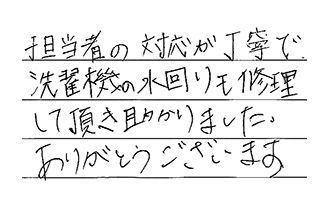 担当者の対応が丁寧で、
洗濯機の水回りも修理
して頂き助かりました。
ありがとうございます